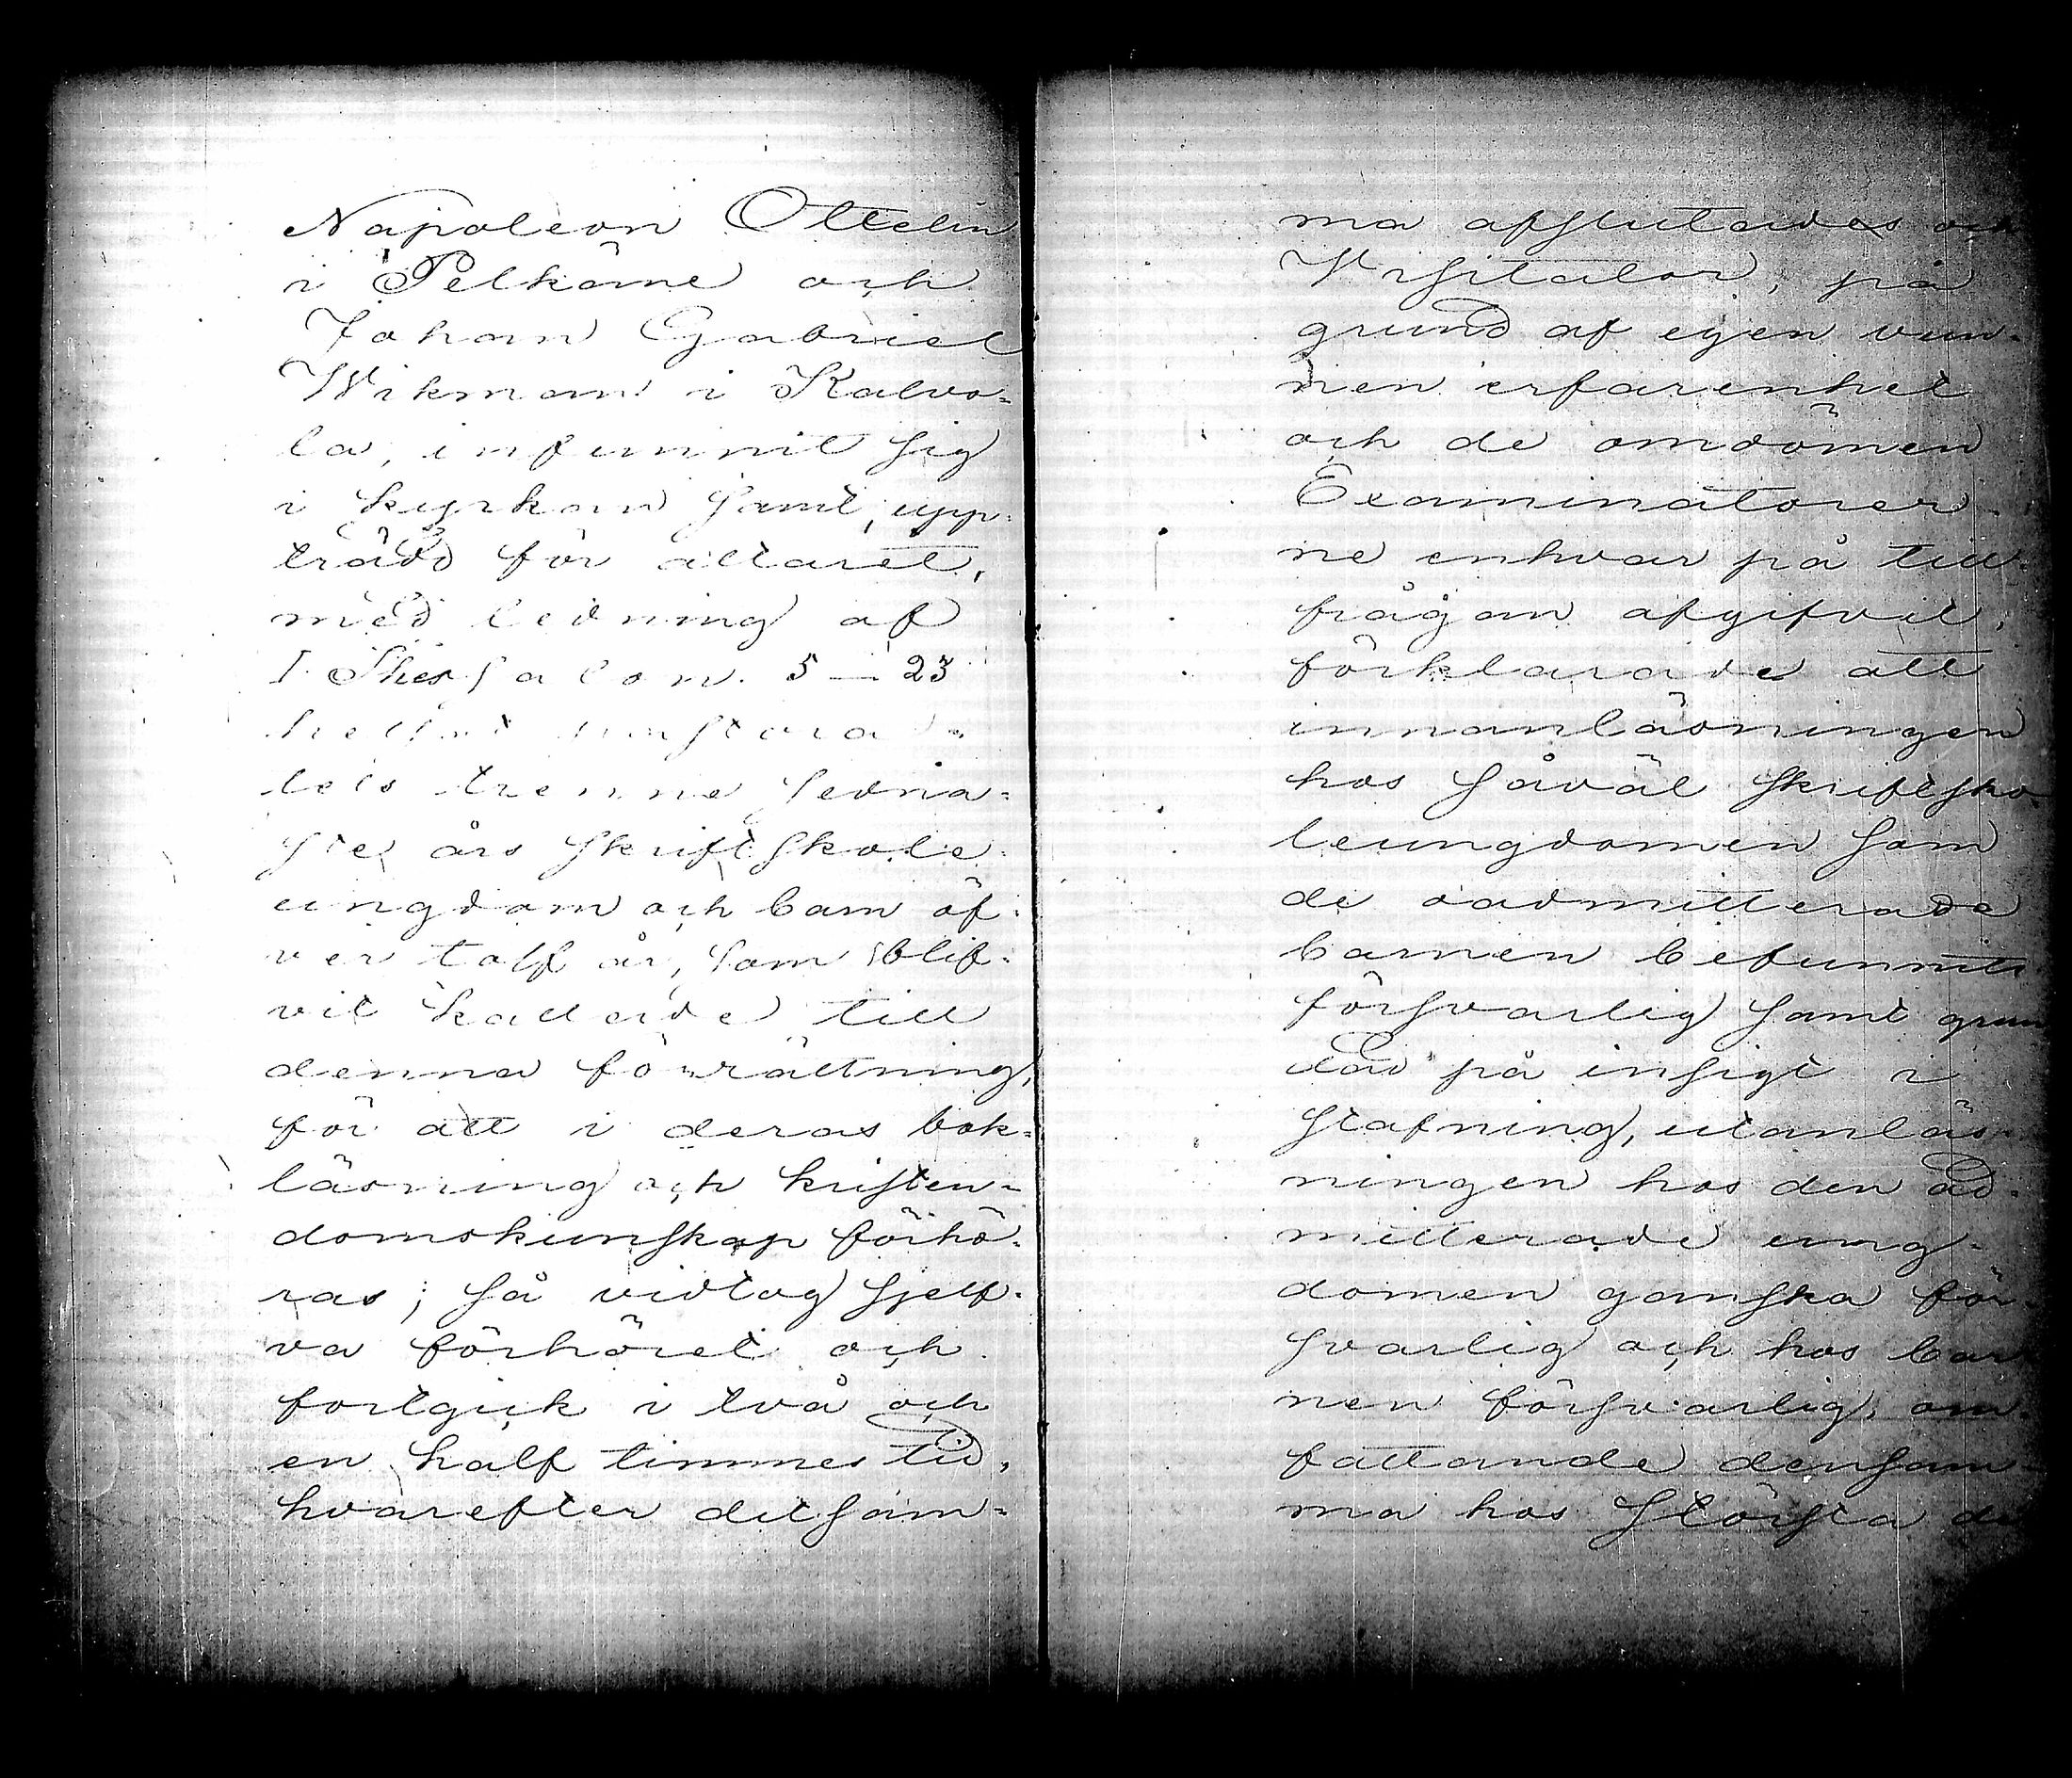 Napoleon Ottelin
i Pelkäne och
Johan Gabriel
Wikman i Kalvo-
la, infunnit sig
i kyrkan samt, upp-
trädd för altaret,
med ledning af
I. Thessalon. 5 – 23
tets trenne sedna-
ste års skriftskole-
ungdom och barn öf-
ver tolf år, som blif-
vit kallade till
denna förrättning,
för att i deras bok-
läsning och kristen-
domskunskap förhö-
ras; så vidtog sjelf-
va förhöret och
fortgick i två och
en half timmes tid,
hvarefter detsam-
ma afslutades och
Visitator, på
grund af egen vun-
nen erfarenhet
och de omdömen
Examinatorer-
ne enhvar på till-
frågan afgifvit,
förklarade att
innanläsningen
hos såväl skriftsko-
leungdomen som
de oadmitterade
barnen befunnits
försvarlig samt grun-
dad på insigt i
stafning, utanläs-
ningen hos den ad-
mitterade ung-
domen ganska för-
svarlig och hos bar-
nen försvarlig, om-
fattande densam-
ma hos största de